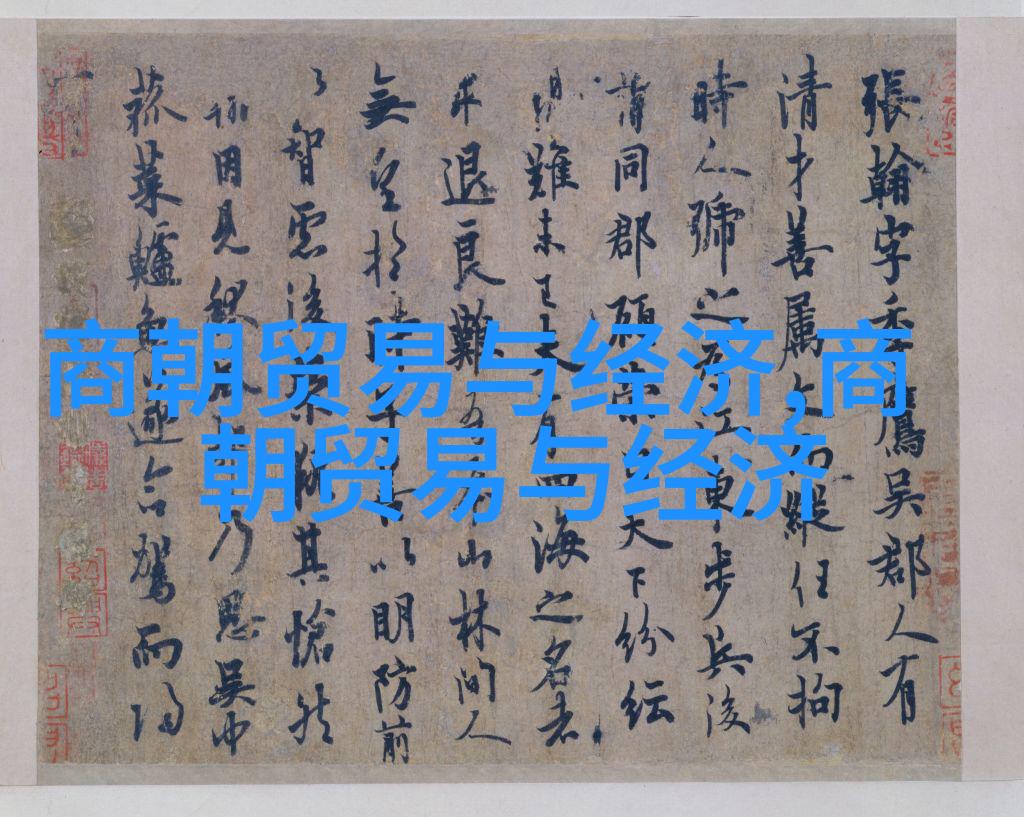 商朝贸易与经济,商
朝贸易与经济
張翰字季鷹吳郡人有
清才善屬文而縱任不拘
時人號之為江東步兵後
謂同郡顧榮曰天下紛紜
難未已夫有四海之名者
求退良難吾本山林間人
無望於時子善以明防前
以智慮後榮執其愴然
翰因見秋風起乃思吳中
菰菜鱸魚遂命駕而歸